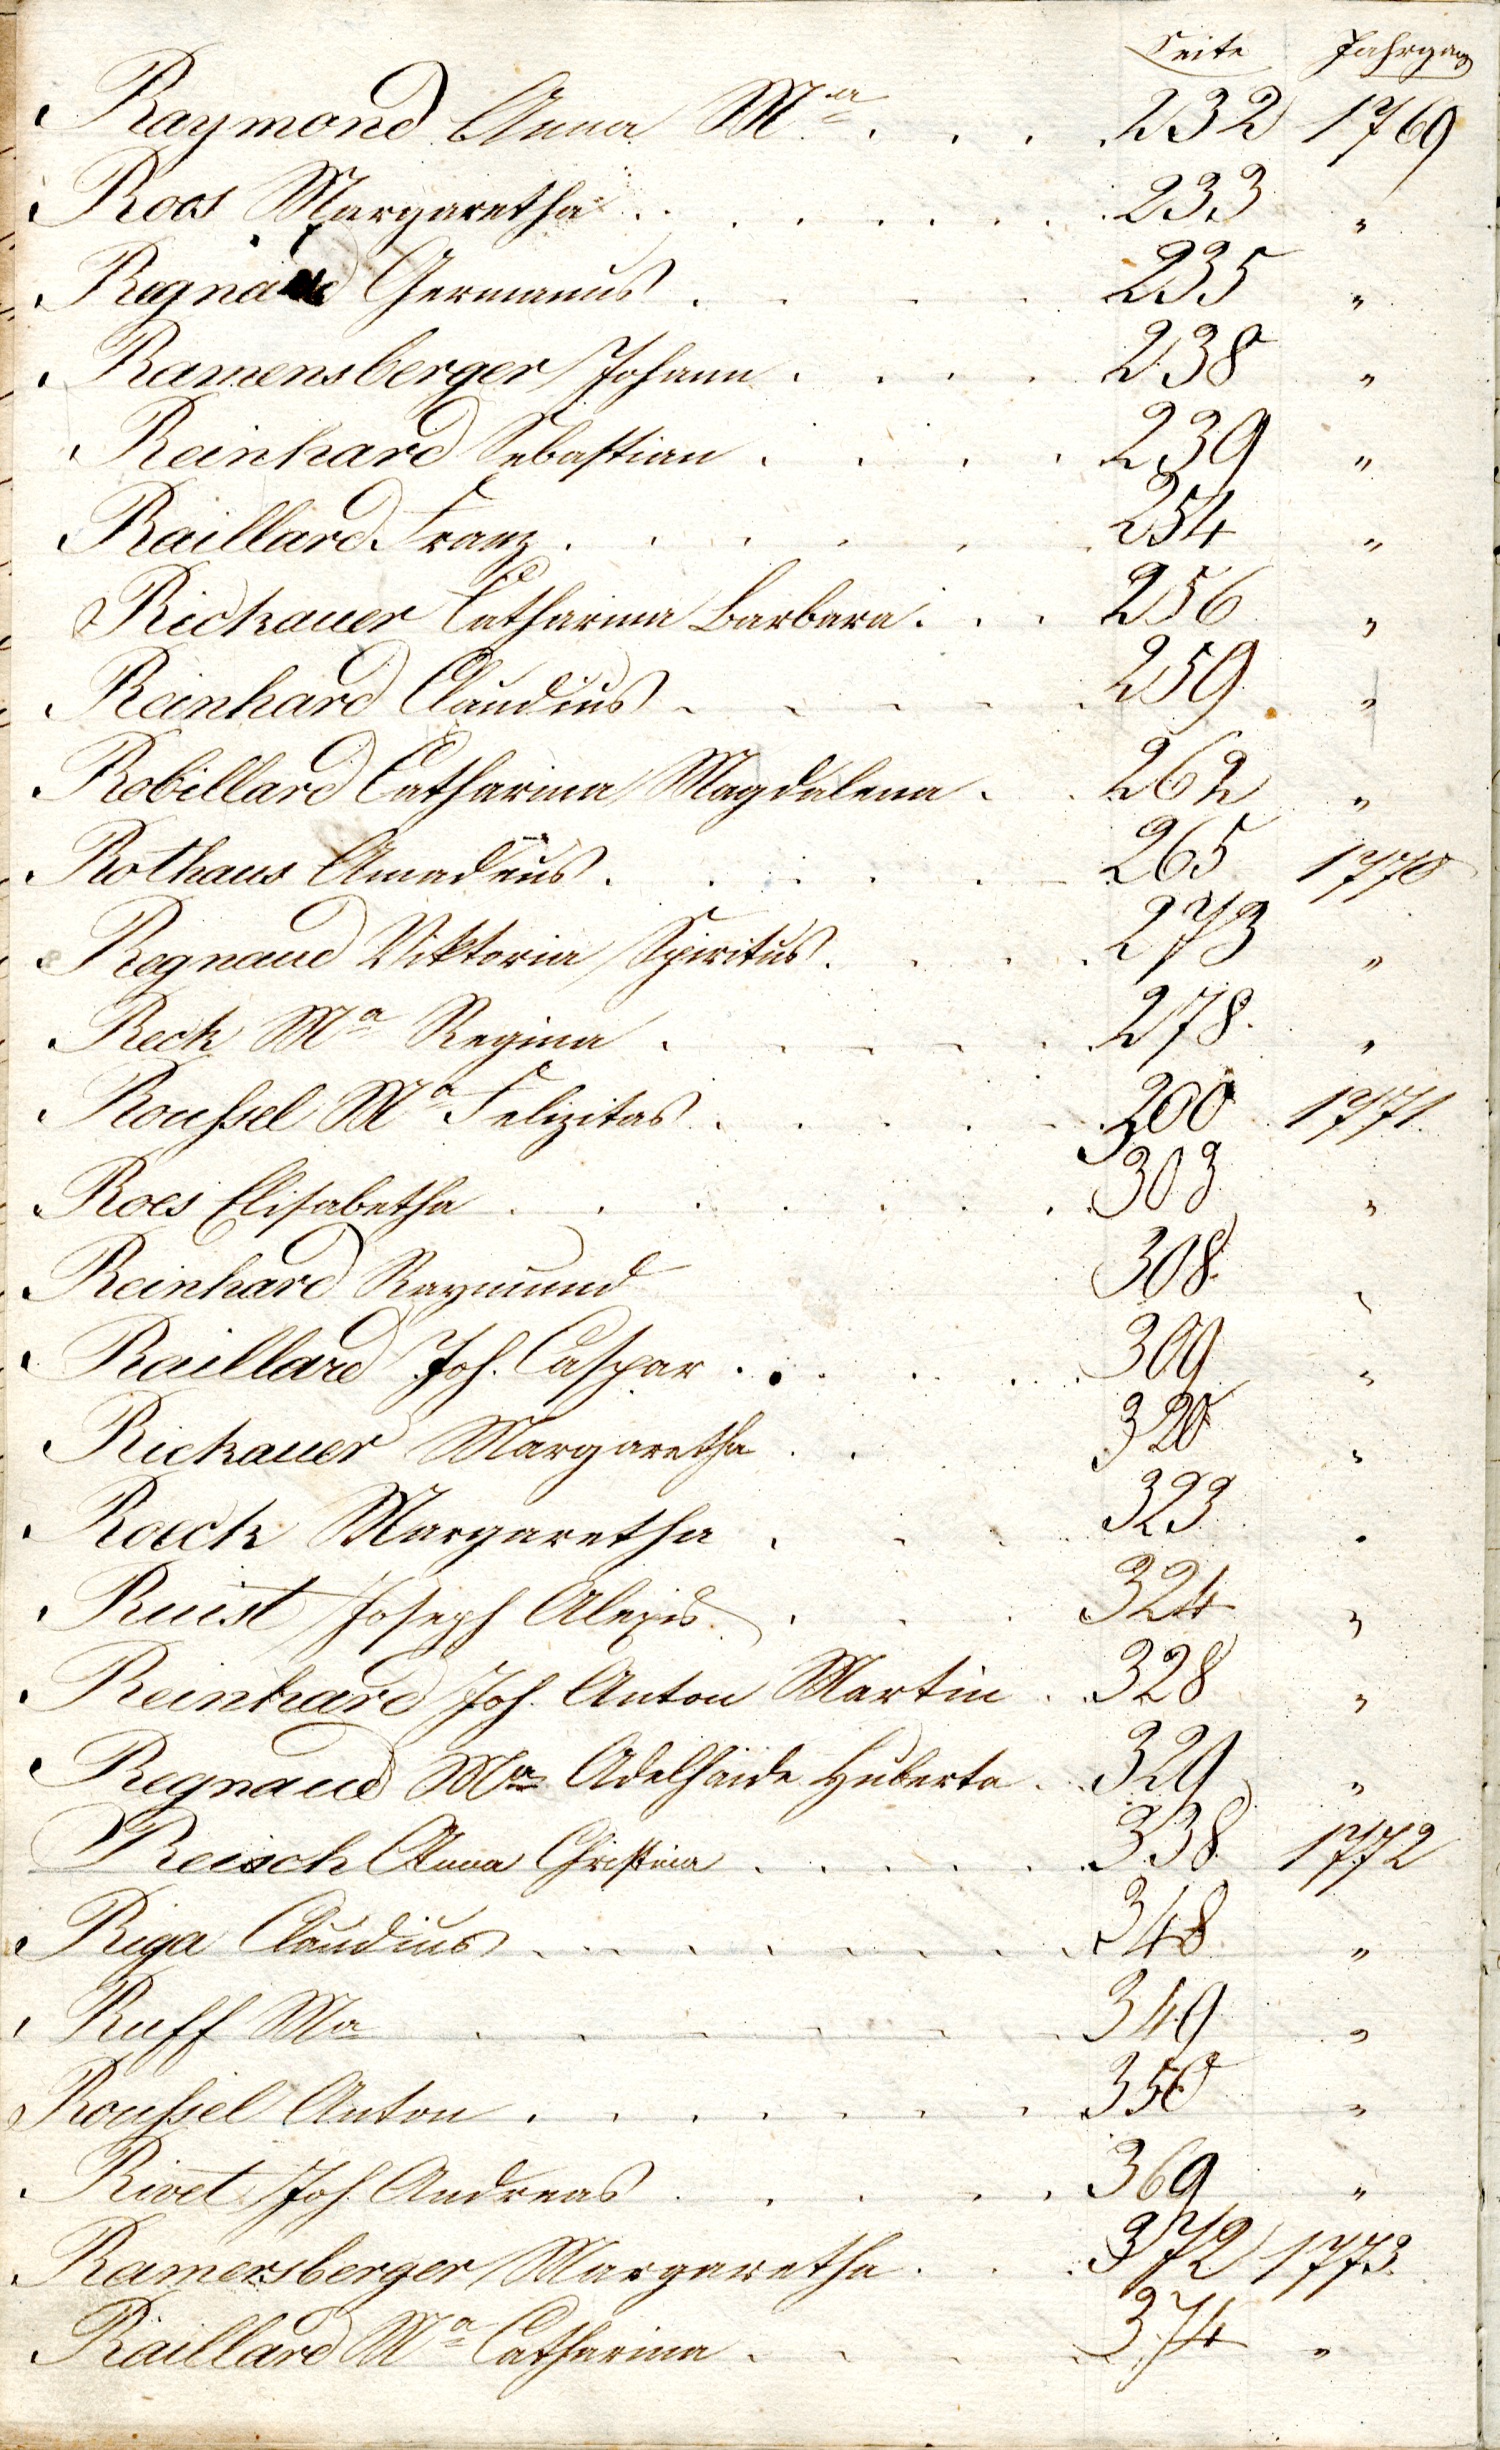 Seite Jahrgang
Raymond Anna Ma . . . . 232 1769
Roos Margaretha . . . . . . . 233 "
Regnaud Germanus . . . . . 235 "
Ramensberger Johann . . . . 238 "
Reinhard Sebastian . . . . . 239 "
Raillard Franz . . . . . . . 254 "
Rickauer Catharina Barbara . . . 256 "
Reinhard Claudius . . . . . 259 "
Robillard Catharina Magdalena . . 262 "
Rothaus Amadeus . . . . . . 265 1770
Regnaud Viktoria Spiritus . . . . 273 "
Reck Ma Regina . . . . . . 278. "
Roussel Ma Felizitas . . . . . 300 1771.
Roes Elisabetha . . . . . . . 303 "
Reinhard Raymund 308. "
Raillard Joh. Caspar . . . . . . 309 "
Rickauer Margaretha . . 320 "
Roeck Margaretha . . . 323 "
Ruist Joseph Alexis . . . 324 "
Reinhard Joh. Anton Martin . . 328 "
Regnaud Ma Adelhaide Huberta . . 329 "
Reisch Anna Christina . . . . . 338 1772
Riga Claudius . . . . . . . 348 "
Ruff Ma . . . . . . . 349 "
Roussel Anton . . . . . . . 350 "
Rivet Joh. Andreas . . . . . 369 "
Ramersberger Margaretha . . . 372 1773.
Raillard Ma Catharina . . . . 374 "